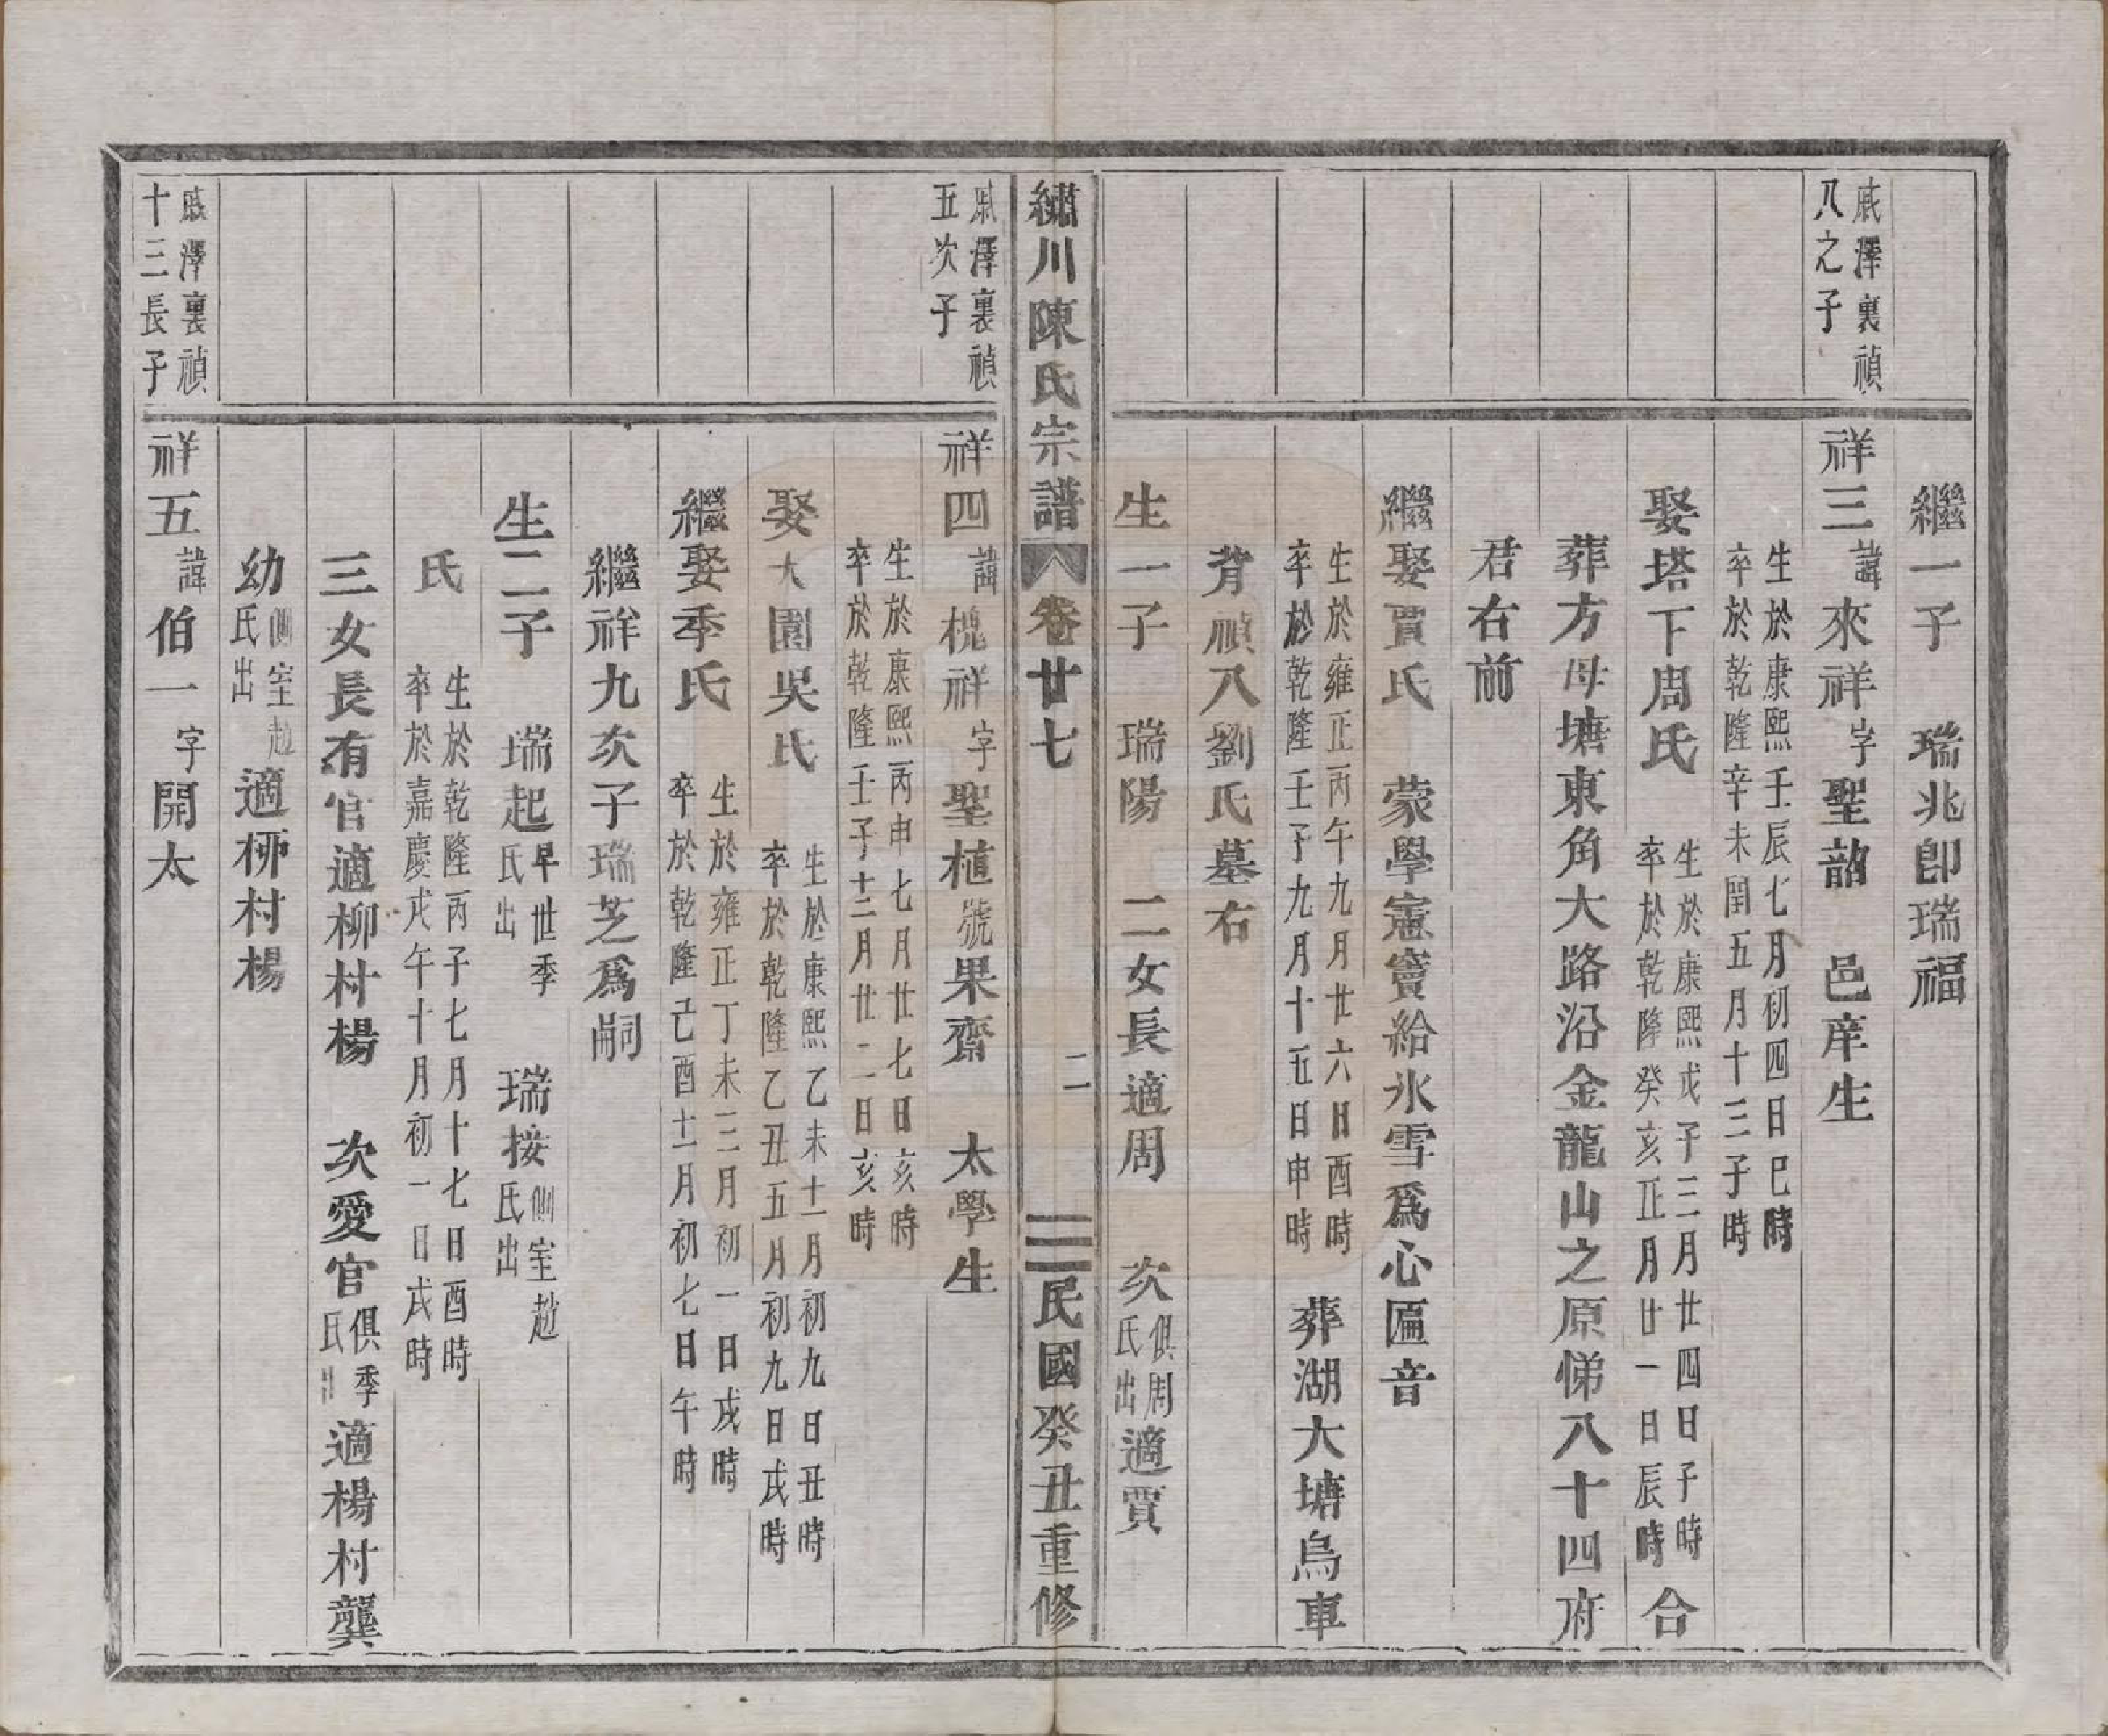 繼一子　瑞兆卽瑞福
戚澤裏禎八之子
祥三諱來祥字聖韶　邑庠生
生於康熙壬辰七月初四日巳時
卒於乾隆辛未閏五月十三子時
娶塔下周氏　生於康熙戊子三月廿四日子時
卒於乾隆癸亥正月廿一日辰時　合
葬方母塘東角大路沿金龍山之原悌八十四府
君右前
繼娶賈氏　蒙學憲竇給氷雪爲心匾音
生於雍正丙午九月廿六日酉時
卒於乾隆壬子九月十五日申時　葬湖大塘烏車
背禎八劉氏墓右
生一子　瑞陽　二女長適周　次俱周氏出適賈
繡川陳氏宗譜　卷廿七　二　民國癸丑重修
戚澤裏禎五次子
祥四諱槐祥字聖植號果齋　太學生
生於康熙丙申七月廿七日亥時
卒於乾隆壬子十二月廿二日亥時
娶大園吳氏　生於康熙乙未十一月初九日丑時
卒於乾隆乙丑五月初九日戌時
繼娶季氏　生於雍正丁未三月初一日戌時
卒於乾隆己酉十一月初七日午時
繼祥九次子瑞芝爲嗣
生二子　瑞起早世季氏出　瑞接側室趙氏出
氏　生於乾隆丙子七月十七日酉時
卒於嘉慶戊午十月初一日戌時
三女長有官適柳村楊　次愛官俱季氏出適楊村龔
幼側室趙氏出適柳村楊
戚澤裏禎十三長子
祥五諱伯一字開太